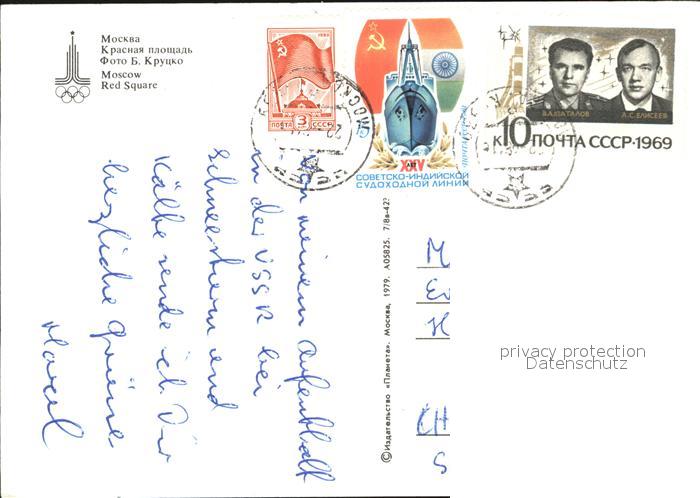 Москва
Красная площадь
Фото Б. Круцко
Moscow
Red Square
1980
ПОЧТА 3 К СССР
XXV
ЛЕТ
СОВЕТСКО-ИНДИЙСКОЙ
СУДОХОДНОЙ ЛИНИИ
ПОЧТА СССР
В.А.ШАТАЛОВ
А.С.ЕЛИСЕЕВ
К10 ПОЧТА СССР·1969
МОСКВА
Von meinem Aufenthalt
in der USSR bei
Schneesturm und
Kälte sende ich Dir
herzliche Grüsse
Marcel
© Издательство «Планета». Москва, 1979. А05825. 7/8а-423
M
H
CH
S
privacy protection
Datenschutz